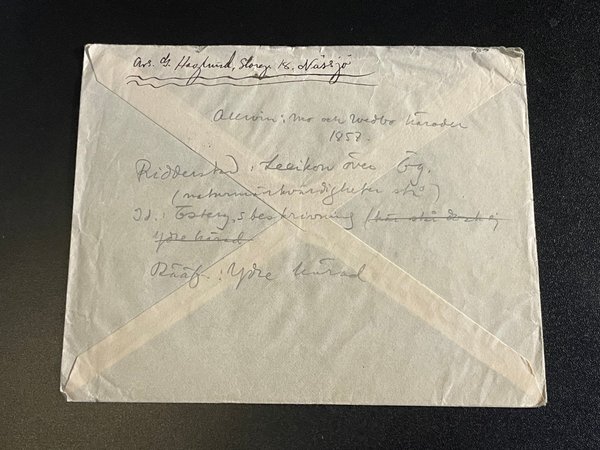 Avs. G. Haglund, Storg. 18. Nässjö
Allvin: Mo och Wedbo härader
1857.
Ridderstad: Lexikon över Ög.
(naturmärkvärdigheter
Id.: Österg.s beskrivning
Ydre härad
Rääf: Ydre härad